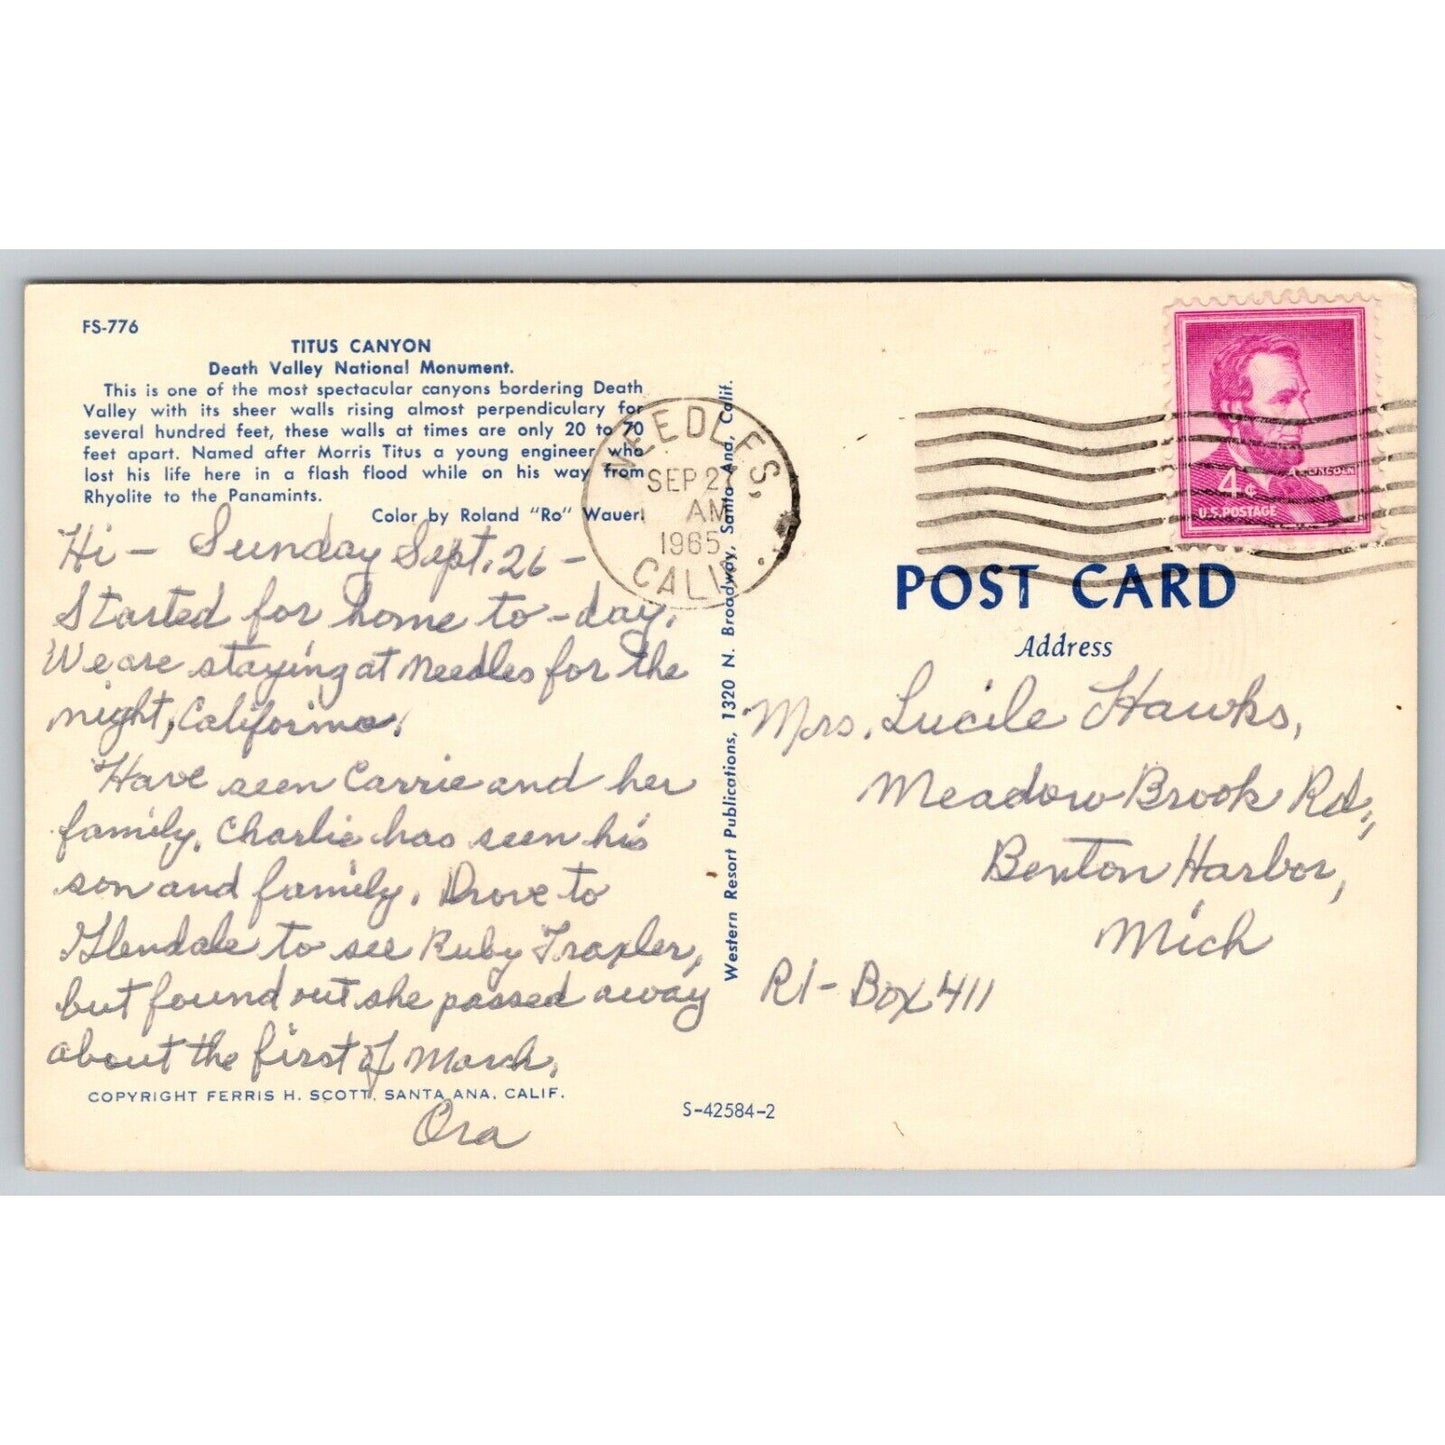 FS-776
TITUS CANYON
Death Valley National Monument.
This is one of the most spectacular canyons bordering Death
Valley with its sheer walls rising almost perpendiculary for
several hundred feet, these walls at times are only 20 to 70
feet apart. Named after Morris Titus a young engineer who
lost his life here in a flash flood while on his way from
Rhyolite to the Panamints.
Color by Roland "Ro" Wauer
Hi - Sunday Sept. 26 -
Started for home to-day.
We are staying at Needles for the
night, California.
Have seen Carrie and her
family. Charlie has seen his
son and family. Drove to
Glendale to see Ruby Traxler,
but found out she passed away
about the first of March.
COPYRIGHT FERRIS H. SCOTT, SANTA ANA, CALIF.
Ora
Western Resort Publications, 1320 N. Broadway, Santa Ana, Calif.
S-42584-2
NEEDLES,
SEP 27
AM
1965
CALIF.
A. LINCOLN
4¢
U.S. POSTAGE
POST CARD
Address
Mrs. Lucile Hawks,
Meadow Brook Rd.,
Benton Harbor,
Mich
R1 - Box 411